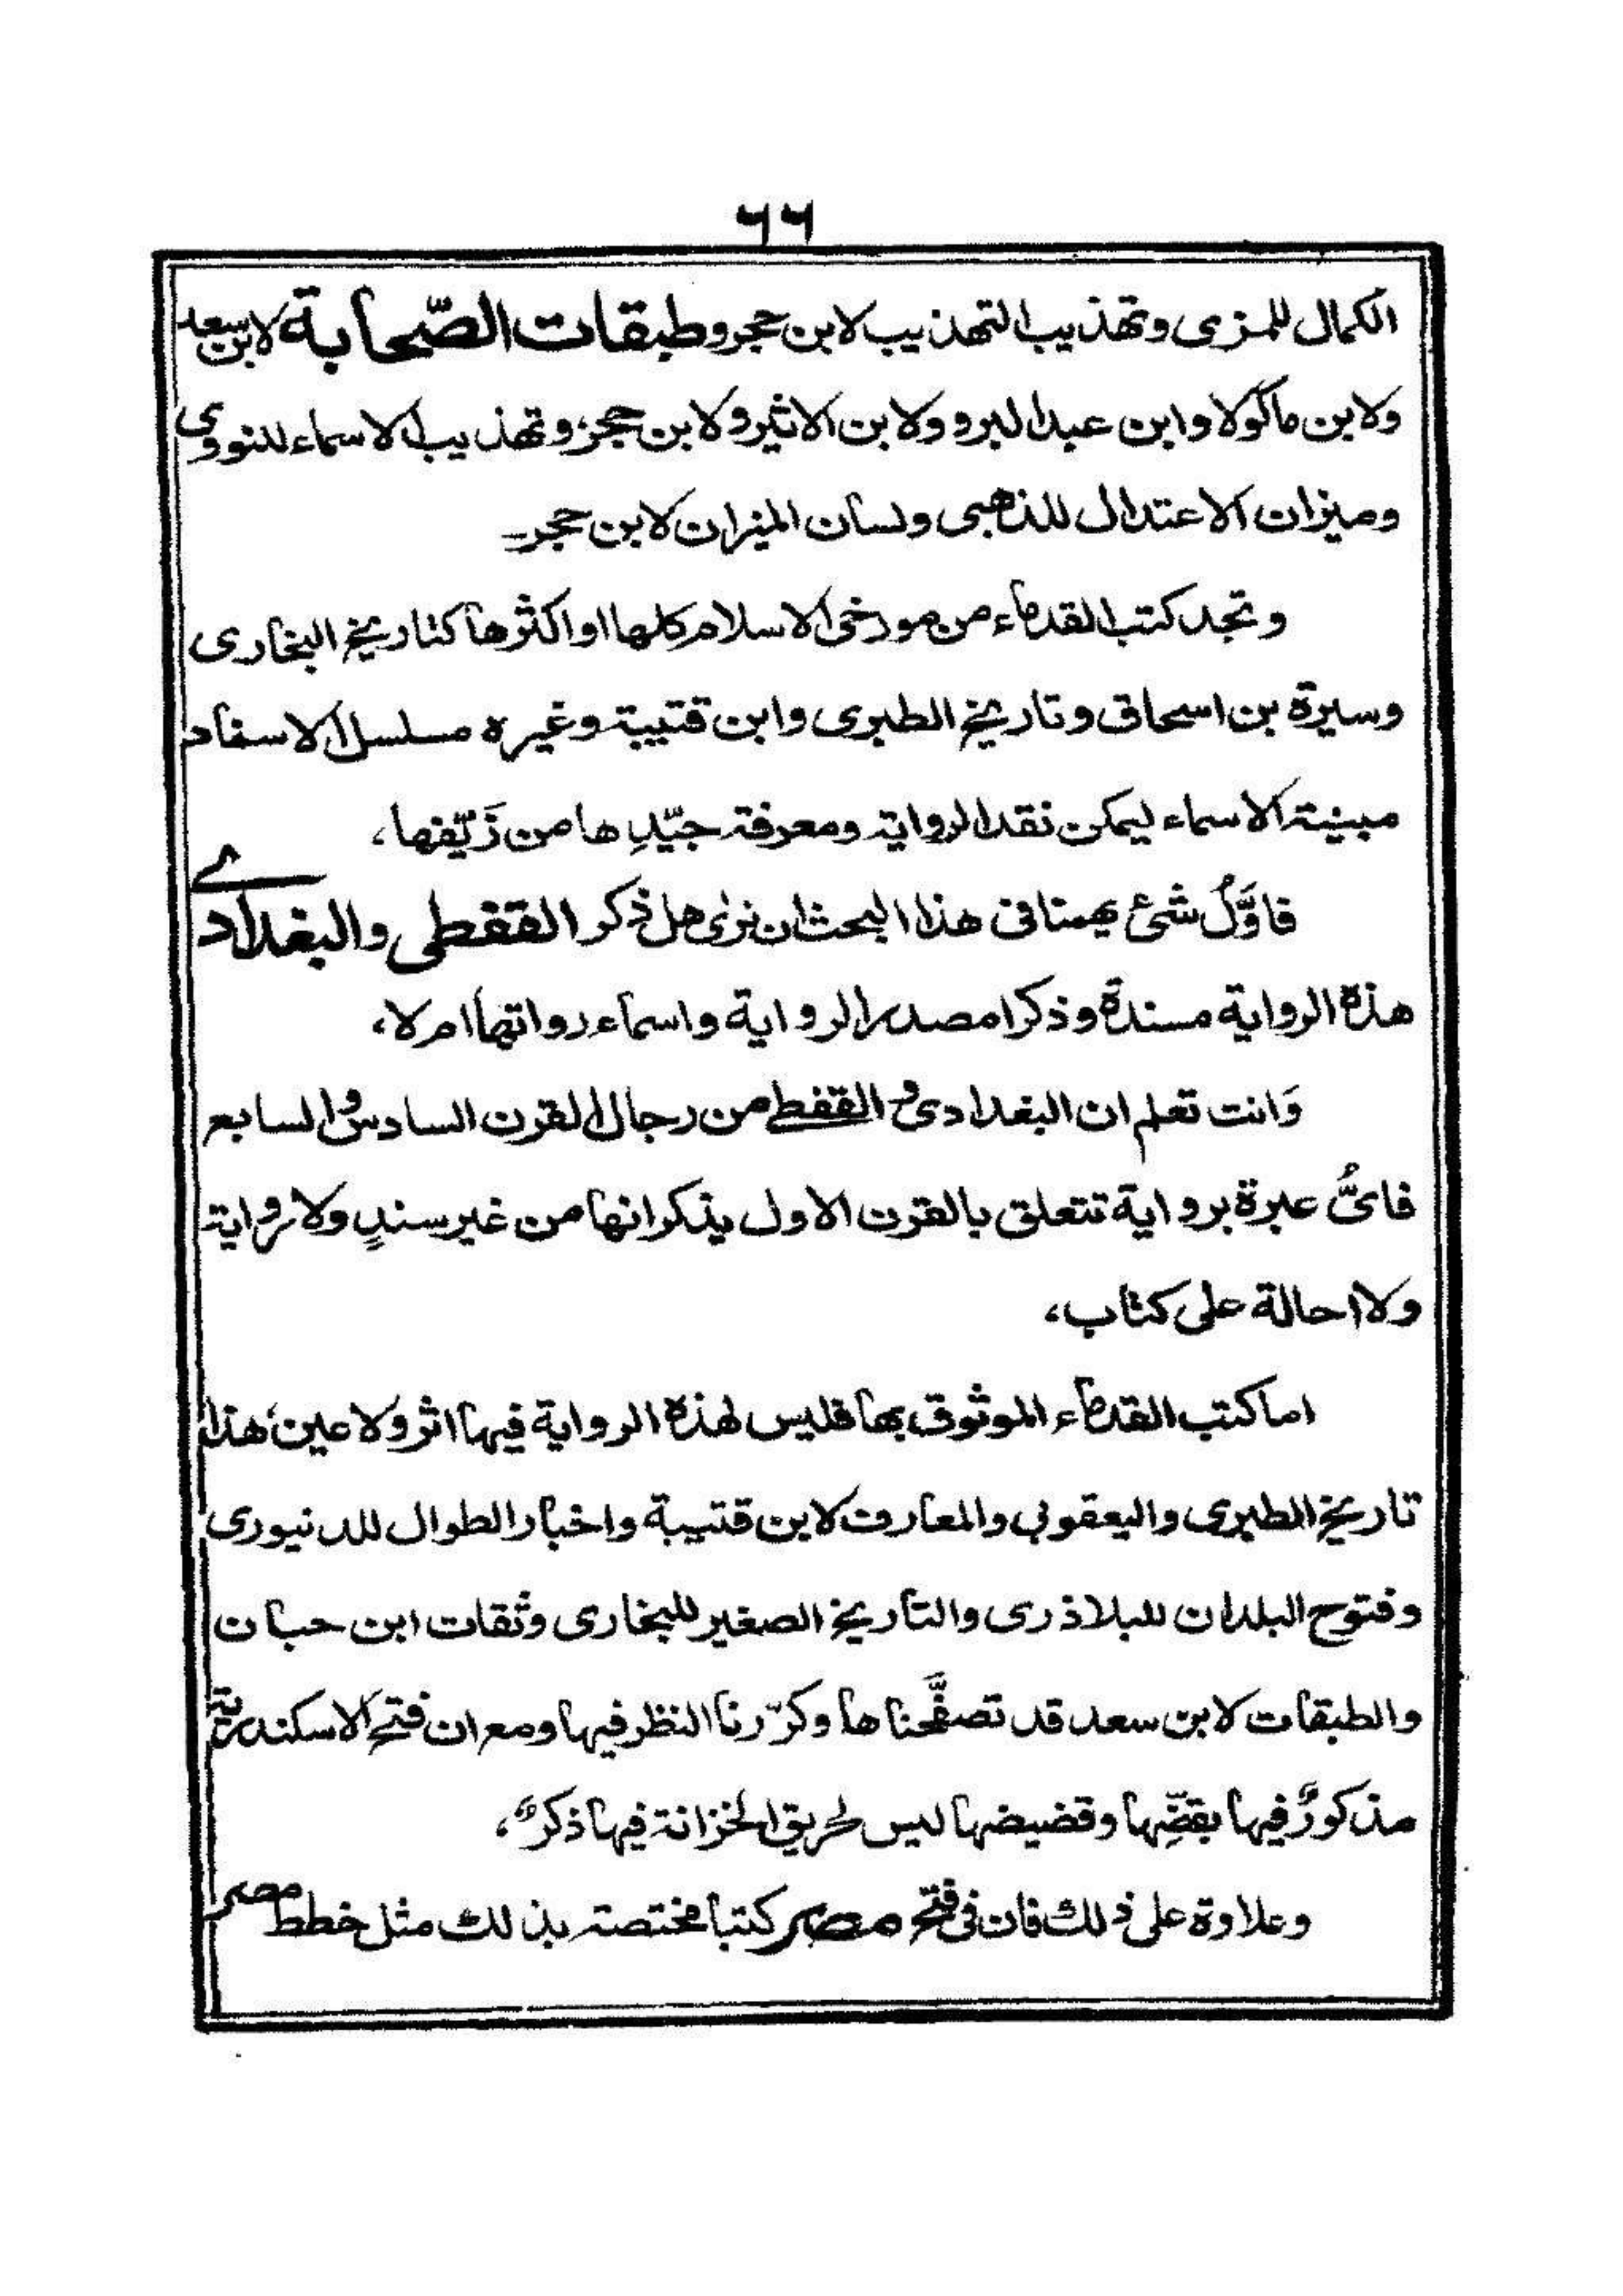 ٦٦
الكمال للمزى وتهذيب التهذيب لابن حجر وطبقات الصّحابة لابن سعد
ولابن ماكولا وابن عبد البرو ولابن الاثير ولابن حجر، وتهذيب الاسماء للنووى
وميزان الاعتدال للذهبى ولسان الميزان لابن حجر۔
وتجد كتب القدماء من مورخى الاسلام كلها او اكثرها كتاريخ البخارى
وسيرة بن اسحاق وتاريخ الطبرى وابن قتيبة وغيره مسلسل الاسناد
مبينة الاسماء ليمكن نقد الرواية ومعرفة جيّدِها من زَيّفها،
فاوَّلُ شئ يهمنا فى هذا البحث ان نرى هل ذكر القفطى والبغدادے
هذة الرواية مسندةً وذكرا مصدر الرواية واسماء رواتها ام لا،
وَانت تعلم ان البغدادى و القفطے من رجال القرن السادس والسابع
فاىُّ عبرة برواية تتعلق بالقرن الاول يذكرانها من غير سندٍ ولا رواية
ولا احالة على كتاب،
اما كتب القدماء الموثوق بها فليس لهذه الرواية فيها اثر ولا عين، هذا
تاريخ الطبرى واليعقوبى والمعارف لابن قتيبة واخبار الطوال للدنيورى
وفتوح البلدان للبلاذرى والتاريخ الصغير للبخارى وثقات ابن حبان
والطبقات لابن سعد قد تصفَّحنا ها وكرّرنا النظر فيها ومع ان فتح الاسكندرية
مذكورٌ فيها بقضِّها وقضيضها ليس لحريق الخزانة فيها ذكرٌ،
وعلاوة على ذلك فان فى فتح مصر كتبا مختصة بذلك مثل خطط مصر